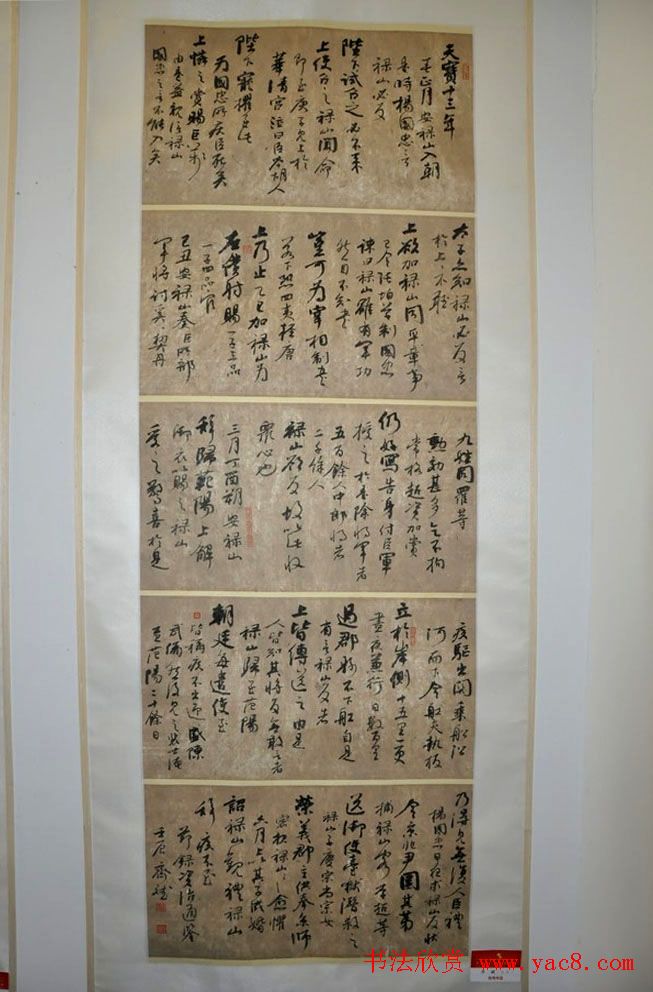 天寶十三年
春正月安祿山入朝
是時楊國忠言
祿山必反
陛下試召之必不來
上使召之祿山聞命
即至庚子見上於
華清宮泣曰臣本胡人
陛下寵擢至此
為國忠所疾臣死矣
上憐之賞賜巨萬
由是益親信祿山
國忠之言不能入矣
太子亦知祿山必反言
於上上不聽
上欲加祿山同平章事
已令張垍草制國忠
諫曰祿山雖有軍功
然目不知書
豈可為宰相制書
若下恐四夷輕唐
上乃止乙巳加祿山為
右僕射賜一子三品
一子四品官
己丑安祿山奏臣所部
軍將討奚契丹
九姓同羅等
勳効甚多乞不拘
常格超資加賞
仍好寫告身付臣軍
授之於是除將軍者
五百餘人中郎將者
二千餘人
祿山欲反故以此收
眾心也
三月丁酉朔安祿山
辭歸范陽上解
御衣以賜之祿山
受之驚喜於是
疾驅出關乘船沿
河而下令船夫執板
立於岸側十五里一更
晝夜兼行日數百里
過郡縣不下船自是
有言祿山反者
上皆縛送之由是
人皆知其將反無敢言者
祿山歸至范陽
朝廷每遣使至
皆稱疾不出迎盛陳
武備然後見之裴士淹
至范陽二十餘日
乃得見無復人臣禮
楊國忠日夜求祿山反狀
令京兆尹圍其第
捕祿山客李超等
送御史臺獄潛殺之
祿山子慶宗尚宗女
榮義郡主供奉京師
密報祿山祿山愈懼
六月上以其子成婚
詔祿山觀禮祿山
辭疾不至
節錄資治通鑒
壬辰
书法欣赏 www.yac8.com